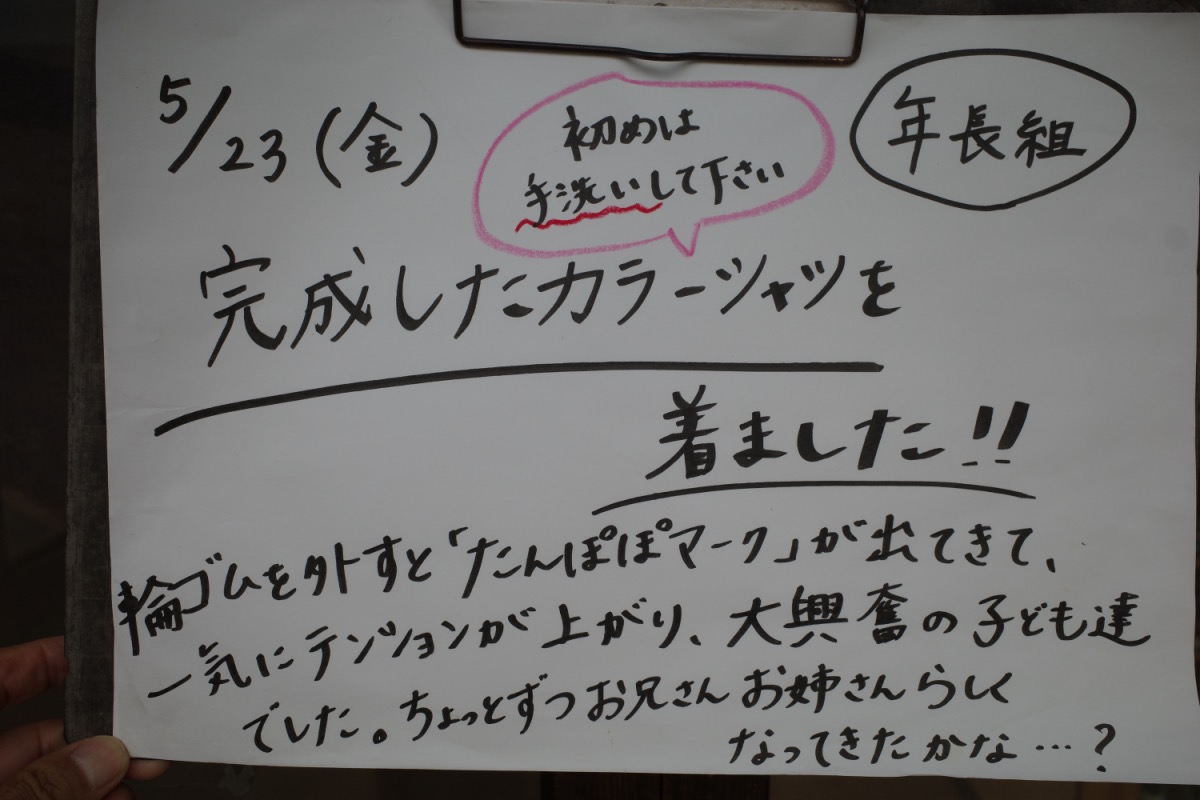 5/23(金)
初めは
手洗いして下さい
年長組
完成したカラーシャツを
着ました!!
輪ゴムを外すと「たんぽぽマーク」が出てきて、
一気にテンションが上がり、大興奮の子ども達
でした。ちょっとずつお兄さんお姉さんらしく
なってきたかな…?